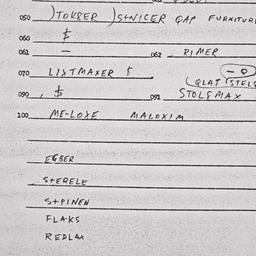 050 )TOKBER )S+NICER GAP FURNITUR
060 $
061 — 062 - RIMER
070 LIXTMAXER $
(QLAT STELS
090 . $ 091 STOLSMAX
100 ME-LOXE MALOXIM
EGBER
S+ERELE
S+PINEN
FLAKS
REDLAX